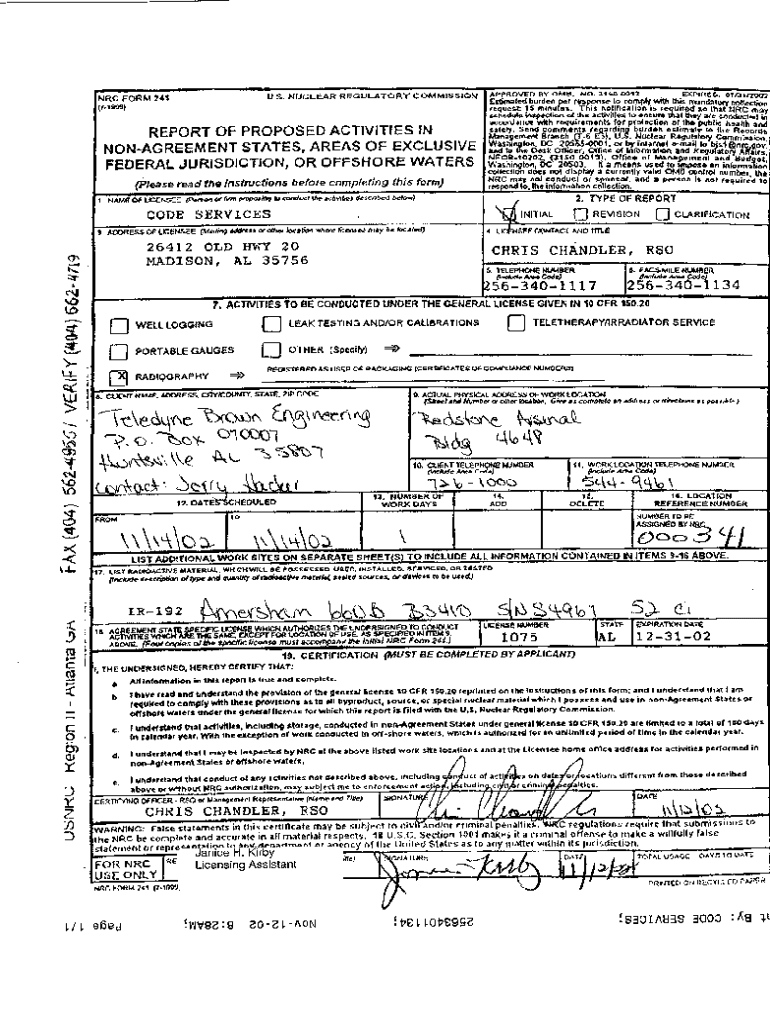 NRC FORM 241
(7-1999)
U.S. NUCLEAR REGULATORY COMMISSION
REPORT OF PROPOSED ACTIVITIES IN
NON-AGREEMENT STATES, AREAS OF EXCLUSIVE
FEDERAL JURISDICTION, OR OFFSHORE WATERS
(Please read the instructions before completing this form)
APPROVED BY OMB: NO. 3150-0013 EXPIRES:
Estimated burden per response to comply with this mandatory collection
request: 15 minutes. This notification is required so that NRC may
schedule inspection of the activities to ensure that they are conducted in
accordance with requirements for protection of the public health and
safety. Send comments regarding burden estimate to the Records
Management Branch (T-6 E6), U.S. Nuclear Regulatory Commission,
Washington, DC 20555-0001, or by internet e-mail to bjs1@nrc.gov,
and to the Desk Officer, Office of Information and Regulatory Affairs,
NEOB-10202, (3150-0013), Office of Management and Budget,
Washington, DC 20503. If a means used to impose an information
collection does not display a currently valid OMB control number, the
NRC may not conduct or sponsor, and a person is not required to
respond to, the information collection.
1. NAME OF LICENSEE (Person or firm proposing to conduct the activities described below)
CODE SERVICES
2. TYPE OF REPORT
INITIAL REVISION CLARIFICATION
3. ADDRESS OF LICENSEE (Mailing address or other location where licensee may be located)
26412 OLD HWY 20
MADISON, AL 35756
4. LICENSEE CONTACT AND TITLE
CHRIS CHANDLER, RSO
5. TELEPHONE NUMBER
(Include Area Code)
256-340-1117
6. FACSIMILE NUMBER
(Include Area Code)
256-340-1134
7. ACTIVITIES TO BE CONDUCTED UNDER THE GENERAL LICENSE GIVEN IN 10 CFR 150.20
WELL LOGGING LEAK TESTING AND/OR CALIBRATIONS TELETHERAPY/IRRADIATOR SERVICE
PORTABLE GAUGES OTHER (Specify)
X RADIOGRAPHY REGISTERED AS USER OF PACKAGING (CERTIFICATES OF COMPLIANCE NUMBERS)
8. CLIENT NAME, ADDRESS, CITY/COUNTY, STATE, ZIP CODE
Teledyne Brown Engineering
P.O. Box 070007
Huntsville AL 35807
contact: Jerry Hacker
9. ACTUAL PHYSICAL ADDRESS OF WORK LOCATION
(Street and Number or other location. Give as complete an address or directions as possible)
Redstone Arsenal
Bldg 4648
10. CLIENT TELEPHONE NUMBER
(Include Area Code)
726-1000
11. WORK LOCATION TELEPHONE NUMBER
(Include Area Code)
544-9461
12. DATES SCHEDULED
FROM
11/14/02
TO
11/14/02
13. NUMBER OF
WORK DAYS
1
14.
ADD
15.
DELETE
16. LOCATION
REFERENCE NUMBER
NUMBER TO BE
ASSIGNED BY NRC
000341
LIST ADDITIONAL WORK SITES ON SEPARATE SHEET(S) TO INCLUDE ALL INFORMATION CONTAINED IN ITEMS 8-16 ABOVE.
17. LIST RADIOACTIVE MATERIAL, WHICH WILL BE POSSESSED, USED, INSTALLED, SERVICED, OR TESTED
(Include description of type and quantity of radioactive material, sealed sources, or devices to be used)
IR-192 Amersham 660B B3410 S/N S4967 52 ci
18. AGREEMENT STATE SPECIFIC LICENSE WHICH AUTHORIZES THE UNDERSIGNED TO CONDUCT
ACTIVITIES WHICH ARE THE SAME, EXCEPT FOR LOCATION OF USE, AS SPECIFIED IN ITEM 9,
ABOVE. (Four copies of the specific license must accompany the initial NRC Form 241.)
LICENSE NUMBER
1075
STATE
AL
EXPIRATION DATE
12-31-02
19. CERTIFICATION (MUST BE COMPLETED BY APPLICANT)
I, THE UNDERSIGNED, HEREBY CERTIFY THAT:
a. All information in this report is true and complete.
b. I have read and understand the provision of the general license 10 CFR 150.20 reprinted on the instructions of this form; and I understand that I am
required to comply with these provisions as to all byproduct, source, or special nuclear material which I possess and use in non-Agreement States or
offshore waters under the general license for which this report is filed with the U.S. Nuclear Regulatory Commission.
c. I understand that activities, including storage, conducted in non-Agreement States under general license 10 CFR 150.20 are limited to a total of 180 days
in calendar year. With the exception of work conducted in off-shore waters, which is authorized for an unlimited period of time in the calendar year.
d. I understand that I may be inspected by NRC at the above listed work site locations and at the Licensee home office address for activities performed in
non-Agreement States or offshore waters.
e. I understand that conduct of any activities not described above, including conduct of activities on dates or locations different from those described
above or without NRC authorization, may subject me to enforcement action, including civil or criminal penalties.
CERTIFYING OFFICER - RSO or Management Representative (Name and Title)
CHRIS CHANDLER, RSO
SIGNATURE
Chris Chandler
DATE
11/12/02
WARNING: False statements in this certificate may be subject to civil and/or criminal penalties. NRC regulations require that submissions to
the NRC be complete and accurate in all material respects. 18 U.S.C. Section 1001 makes it a criminal offense to make a willfully false
statement or representation to any department or agency of the United States as to any matter within its jurisdiction.
FOR NRC
USE ONLY
Janice H. Kirby
Licensing Assistant
SIGNATURE
DATE
TOTAL USAGE - DAYS TO DATE
NRC FORM 241 (7-1999)
PRINTED ON RECYCLED PAPER
USNRC Region II - Atlanta GA FAX (404) 562-4955 / VERIFY (404) 562-4719
nt By: CODE SERVICES; 2563401134; Nov-12-02 8:28AM; Page 1/1